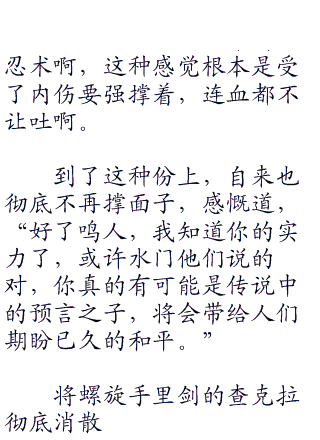 忍术啊，这种感觉根本是受
了内伤要强撑着，连血都不
让吐啊。
到了这种份上，自来也
彻底不再撑面子，感慨道，
“好了鸣人，我知道你的实
力了，或许水门他们说的
对，你真的有可能是传说中
的预言之子，将会带给人们
期盼已久的和平。”
将螺旋手里剑的查克拉
彻底消散